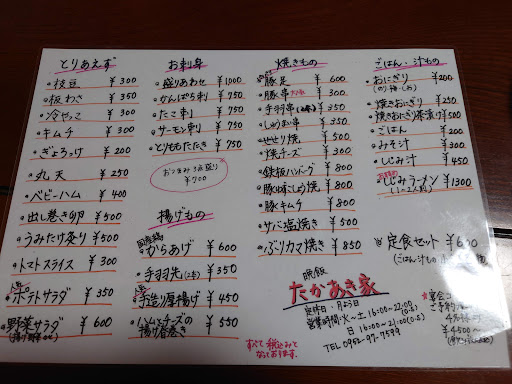 とりあえず
・枝豆 ¥300
・板わさ ¥350
・冷やっこ ¥300
・キムチ ¥300
・ぎょろっけ ¥200
・丸天 ¥250
・ベビーハム ¥400
・出し巻き卵 ¥500
・うみたけ炙り ¥500
・トマトスライス ¥300
・ポテトサラダ ¥350
・野菜サラダ ¥600
お刺身
・盛りあわせ ¥1000
・かんぱち刺 ¥750
・たこ刺 ¥750
・サーモン刺 ¥750
・とりももたたき ¥750
おつまみ3点盛り
¥700
揚げもの
国産鶏
・からあげ ¥600
・手羽先(2本) ¥350
・手造り厚揚げ ¥450
・ハムとチーズの
揚げ春巻き ¥550
すべて税込みと
なっております。
焼きもの
・豚足 ¥600
・豚串 ¥300
・手羽串 ¥350
・しゅうまい串 ¥350
・せせり焼 ¥500
・焼チーズ ¥300
・鉄板ハンバーグ ¥800
・豚しょうが焼 ¥800
・豚キムチ ¥800
・サバ塩焼き ¥500
・ぶりカマ焼き ¥850
晩飯
たかあき家
定休日・月よう日
営業時間・火〜土 16:00〜22:00
日 16:00〜21:00
TEL 0952-97-7599
ごはん・汁もの
・おにぎり ¥200
・焼きおにぎり ¥250
・焼きおにぎり茶漬け ¥500
・ごはん ¥200
・みそ汁 ¥300
・しじみ汁 ¥450
・しじみラーメン ¥1300
・定食セット ¥600
¥4500〜